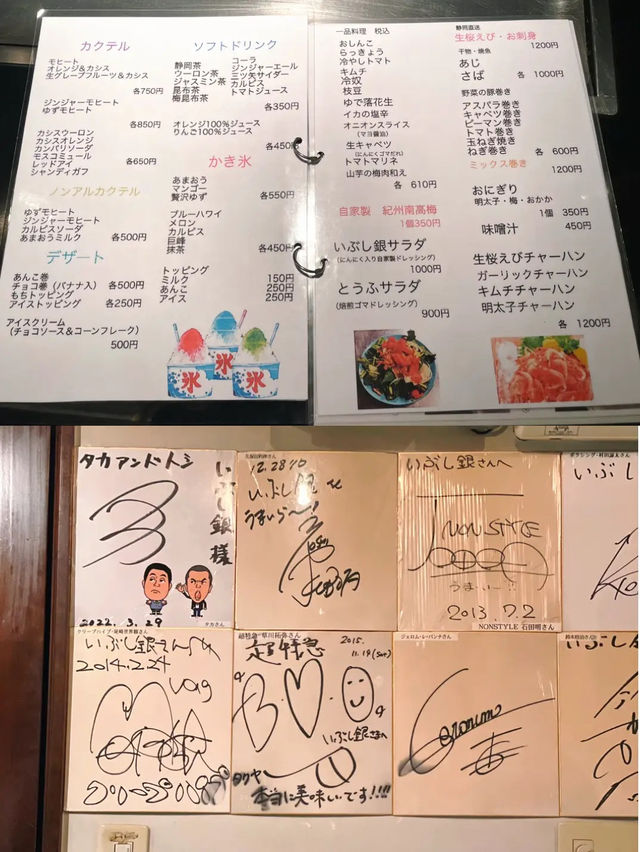 カクテル
モヒート
オレンジ&カシス
生グレープフルーツ&カシス
各750円
ジンジャーモヒート
ゆずモヒート
各850円
カシスウーロン
カシスオレンジ
カンパリソーダ
モスコミュール
レッドアイ
シャンディガフ
各650円
ノンアルカクテル
ゆずモヒート
ジンジャーモヒート
カルピスソーダ
あまおうミルク
各500円
デザート
あんこ巻
チョコ巻(バナナ入) 各500円
もちトッピング
アイストッピング 各250円
アイスクリーム
(チョコソース&コーンフレーク)
500円
ソフトドリンク
静岡茶
ウーロン茶
ジャスミン茶
昆布茶
梅昆布茶
コーラ
ジンジャーエール
三ツ矢サイダー
カルピス
トマトジュース
各350円
オレンジ100%ジュース
りんご100%ジュース
各450
かき氷
あまおう
マンゴー
贅沢ゆず
各550円
ブルーハワイ
メロン
カルピス
巨峰
抹茶
各450
トッピング
ミルク 150円
あんこ 250円
アイス 250円
氷
氷
氷
一品料理 税込
おしんこ
らっきょう
冷やしトマト
キムチ
冷奴
枝豆
ゆで落花生
イカの塩辛
オニオンスライス
(マヨ醤油)
生キャベツ
(にんにくゴマだれ)
トマトマリネ
山芋の梅肉和え
各 610円
自家製 紀州南高梅
1個350円
いぶし銀サラダ
(にんにく入り自家製ドレッシング)
1000円
とうふサラダ
(焙煎ゴマドレッシング)
900円
静岡直送
生桜えび・お刺身
1200円
干物・焼魚
あじ
さば 各 1000円
野菜の豚巻き
アスパラ巻き
キャベツ巻き
ピーマン巻き
トマト巻き
玉ねぎ巻き
なす巻き
各 600円
ミックス巻き
1200円
おにぎり
明太子・梅・おかか
1個 350円
味噌汁 450円
生桜えびチャーハン
ガーリックチャーハン
キムチチャーハン
明太子チャーハン
各 1200円
タカアンドトシ
いぶし銀様
2022.3.29
タカさん
12.28
いぶし銀
うまいら〜!
いぶし銀さんへ
NON STYLE
うまい
2013.7.2
NONSTYLE 石田明さん
ボクシング・村田諒太さん
いぶし
クリープハイプ・尾崎世界観さん
いぶし銀さん
2014.2.24
超特急・草川拓弥さん
超特急
2015.
11.14(Sat)
いぶし銀さまへ
タクヤ
本当に美味いです!!!!
ジェロム・レ・バンナさん
いぶし